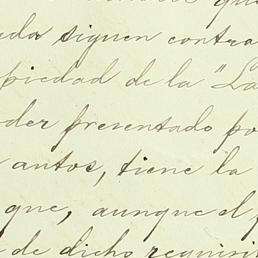 siguen contra
piedad de la "La
presentado po
antos, tiene la
que, aunque el
de dicho requisi